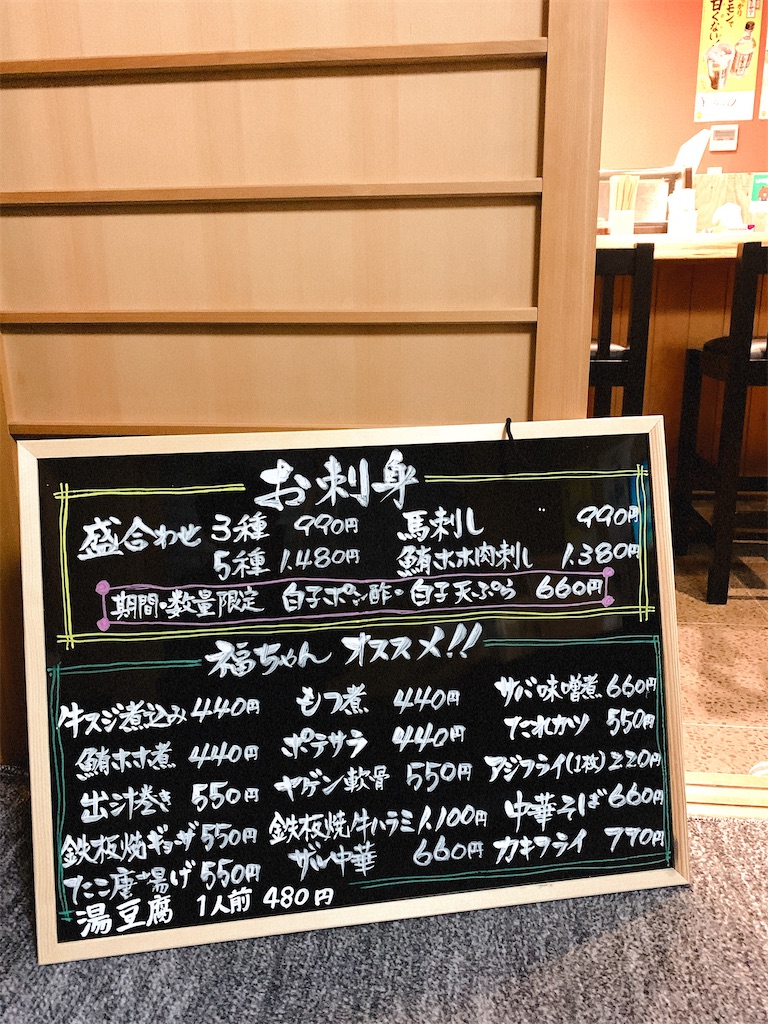 モンで
甘くない!
お刺身
盛合わせ 3種 990円 馬刺し 990円
5種 1.480円 鮪ホホ肉刺し 1.380円
期間・数量限定 白子ポン酢・白子天ぷら 660円
福ちゃん オススメ!!
牛スジ煮込み 440円 もつ煮 440円 サバ味噌煮 660円
鮪ホホ煮 440円 ポテサラ 440円 たれカツ 550円
出汁巻き 550円 ヤゲン軟骨 550円 アジフライ(1枚) 220円
鉄板焼ギョーザ 550円 鉄板焼牛ハラミ 1.100円 中華そば 660円
たこ唐揚げ 550円 ザル中華 660円 カキフライ 770円
湯豆腐 1人前 480円